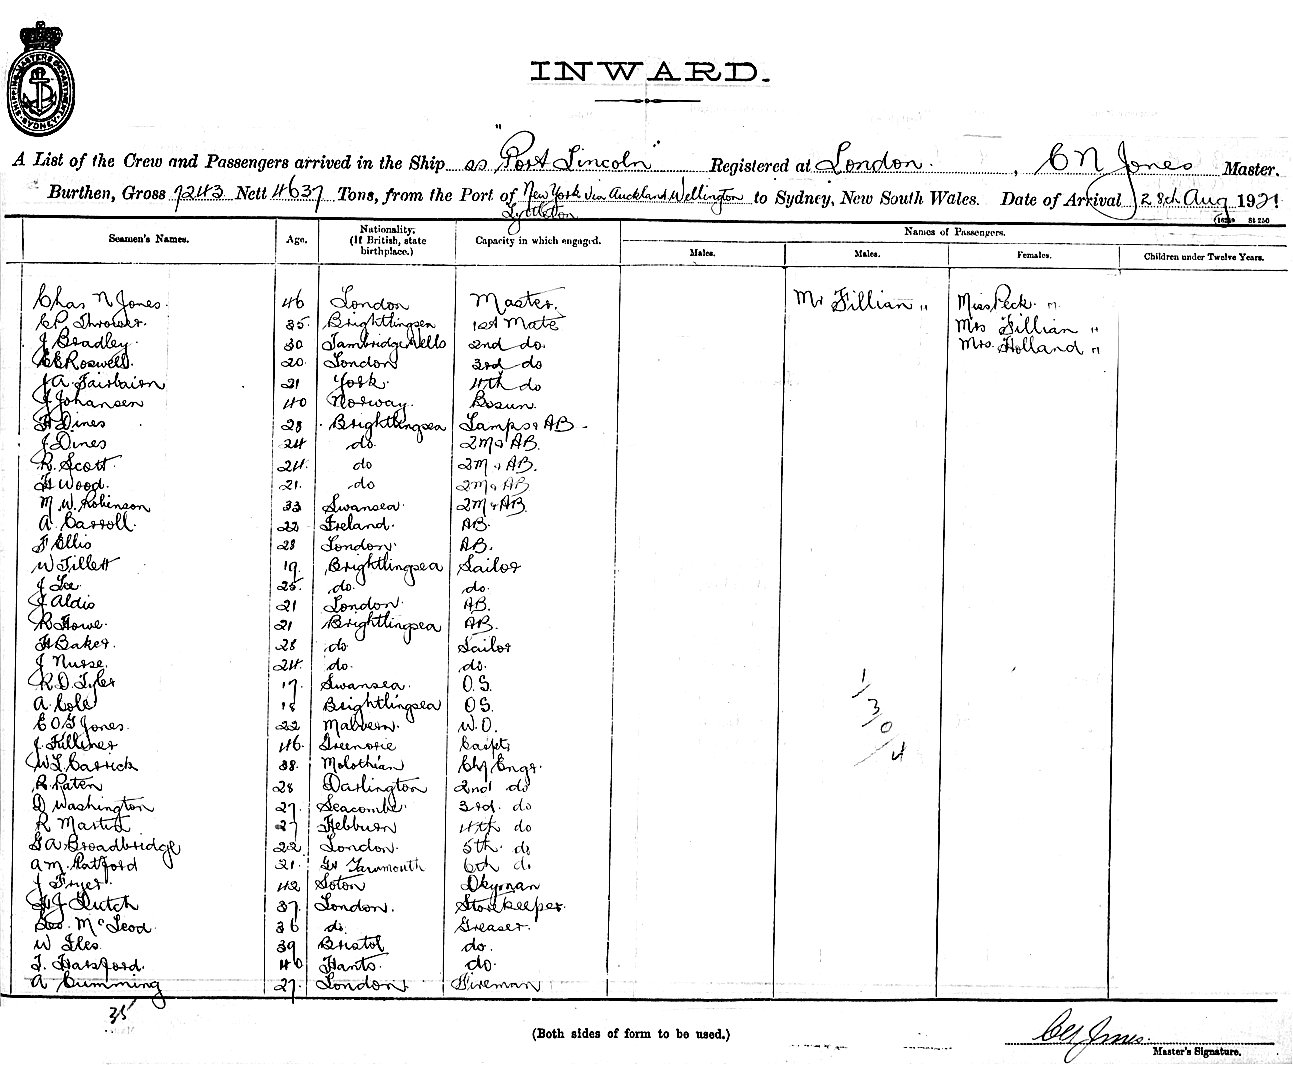 SHIPPING MASTERS DEPARTMENT SYDNEY
INWARD.
A List of the Crew and Passengers arrived in the Ship ss "Port Lincoln" Registered at London. , C N Jones Master.
Burthen, Gross 7243 Nett 4637 Tons, from the Port of New York via Auckland Wellington to Sydney, New South Wales. Date of Arrival 28th Aug 1921
Lyttleton
Seamen's Names. Age. Nationality. (If British, state birthplace.) Capacity in which engaged. Names of Passengers.
Males. Males. Females. Children under Twelve Years.
Chas N Jones. 46 London Master. Mr Fillian " Miss Peck "
35 Brightlingsea 1st Mate Mrs Fillian "
J Beadley. 30 Tambridge Wells 2nd do. Mrs. Holland "
Roswell 20 London 3rd do
J A Fairbairn 21 York. 4th do
J Johansen 40 Norway. Bosun.
H Dines 28 Brightlingsea Lamps & AB
J Dines 24 do. 2M & AB.
R. Scott 24. do 2M & AB.
H Wood. 21. do 2M & AB
M. W. Robinson 33 Swansea. 2M & AB
A Carroll. 22 Ireland. AB.
F Ellis 28 London. AB.
W Tillett 19. Brightlingsea Sailor
J Lee 25. do. do.
J Aldis 21 London. AB.
R Howe. 21 Brightlingsea AB.
H Baker. 28 do Sailor
J Nurse. 24. do. do.
R. D. Tyler 17. Swansea. O.S.
A Cole 18 Brightlingsea OS.
C O G Jones. 22 Malvern. W.O.
J Filliner 46. Greenore Carptr
W L Carrick 38. Midlothian Chf Engr.
R. Paten 28 Darlington 2nd do
D Washington 27. Seacombe. 3rd. do
R Martin 27 Hebburn 4th do
G A Broadbridge 22. London. 5th. do
A M. Ratford 21. Gt Yarmouth 6th do
J Fryer. 42 Soton Dkyman
H J Dutch 37. London. Storekeeper.
Geo. McLeod. 36 do. Greaser.
W Iles. 39 Bristol do.
T. Harsford. 40 Hants. do.
A Cumming 27. London. Fireman
1/3/0/4
35
(Both sides of form to be used.)
C N Jones.
Master's Signature.